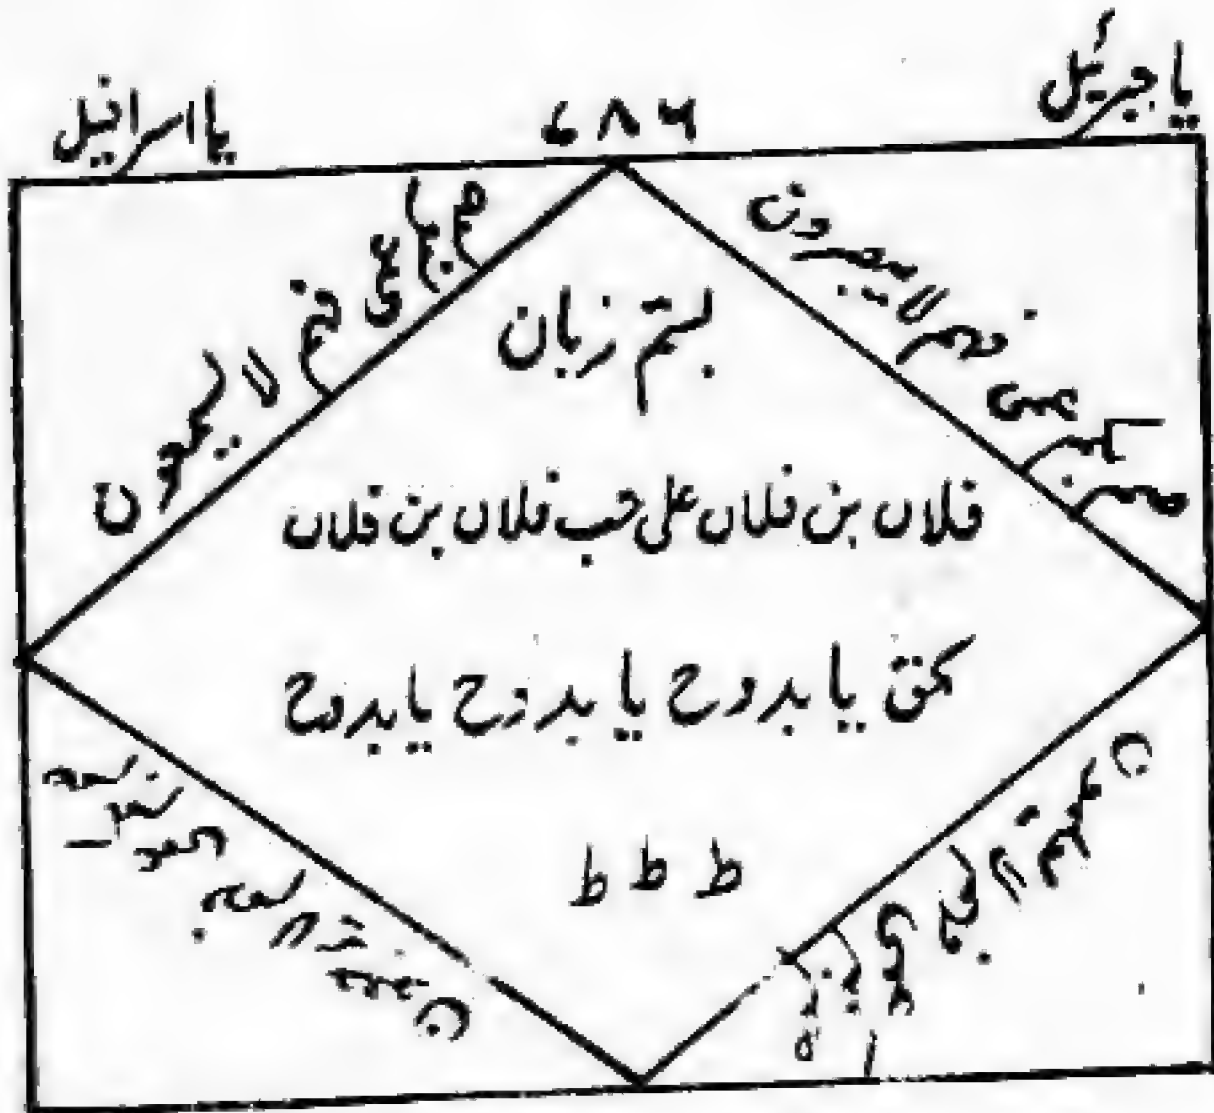 یا جبرئیل
۷۸۶
یا اسرافیل
صم بکم عمی فهم لا یبصرون
صم بکم عمی فهم لا یسمعون
بستم زبان
فلاں بن فلاں علی حب فلاں بن فلاں
بحق یا بدوح یا بدوح یا بدوح
ط ط ط